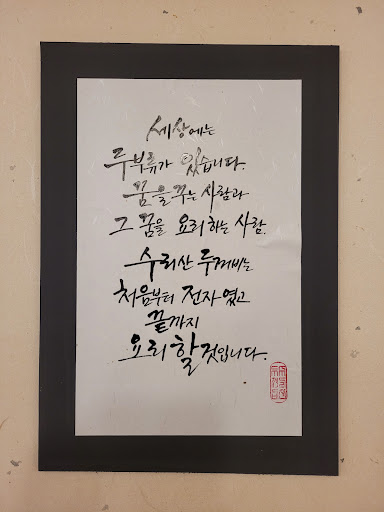 세상에는
두부류가 있습니다.
꿈을 꾸는 사람과
그 꿈을 요리하는 사람.
수리산 두꺼비는
처음부터 전자였고
끝까지
요리할것입니다.